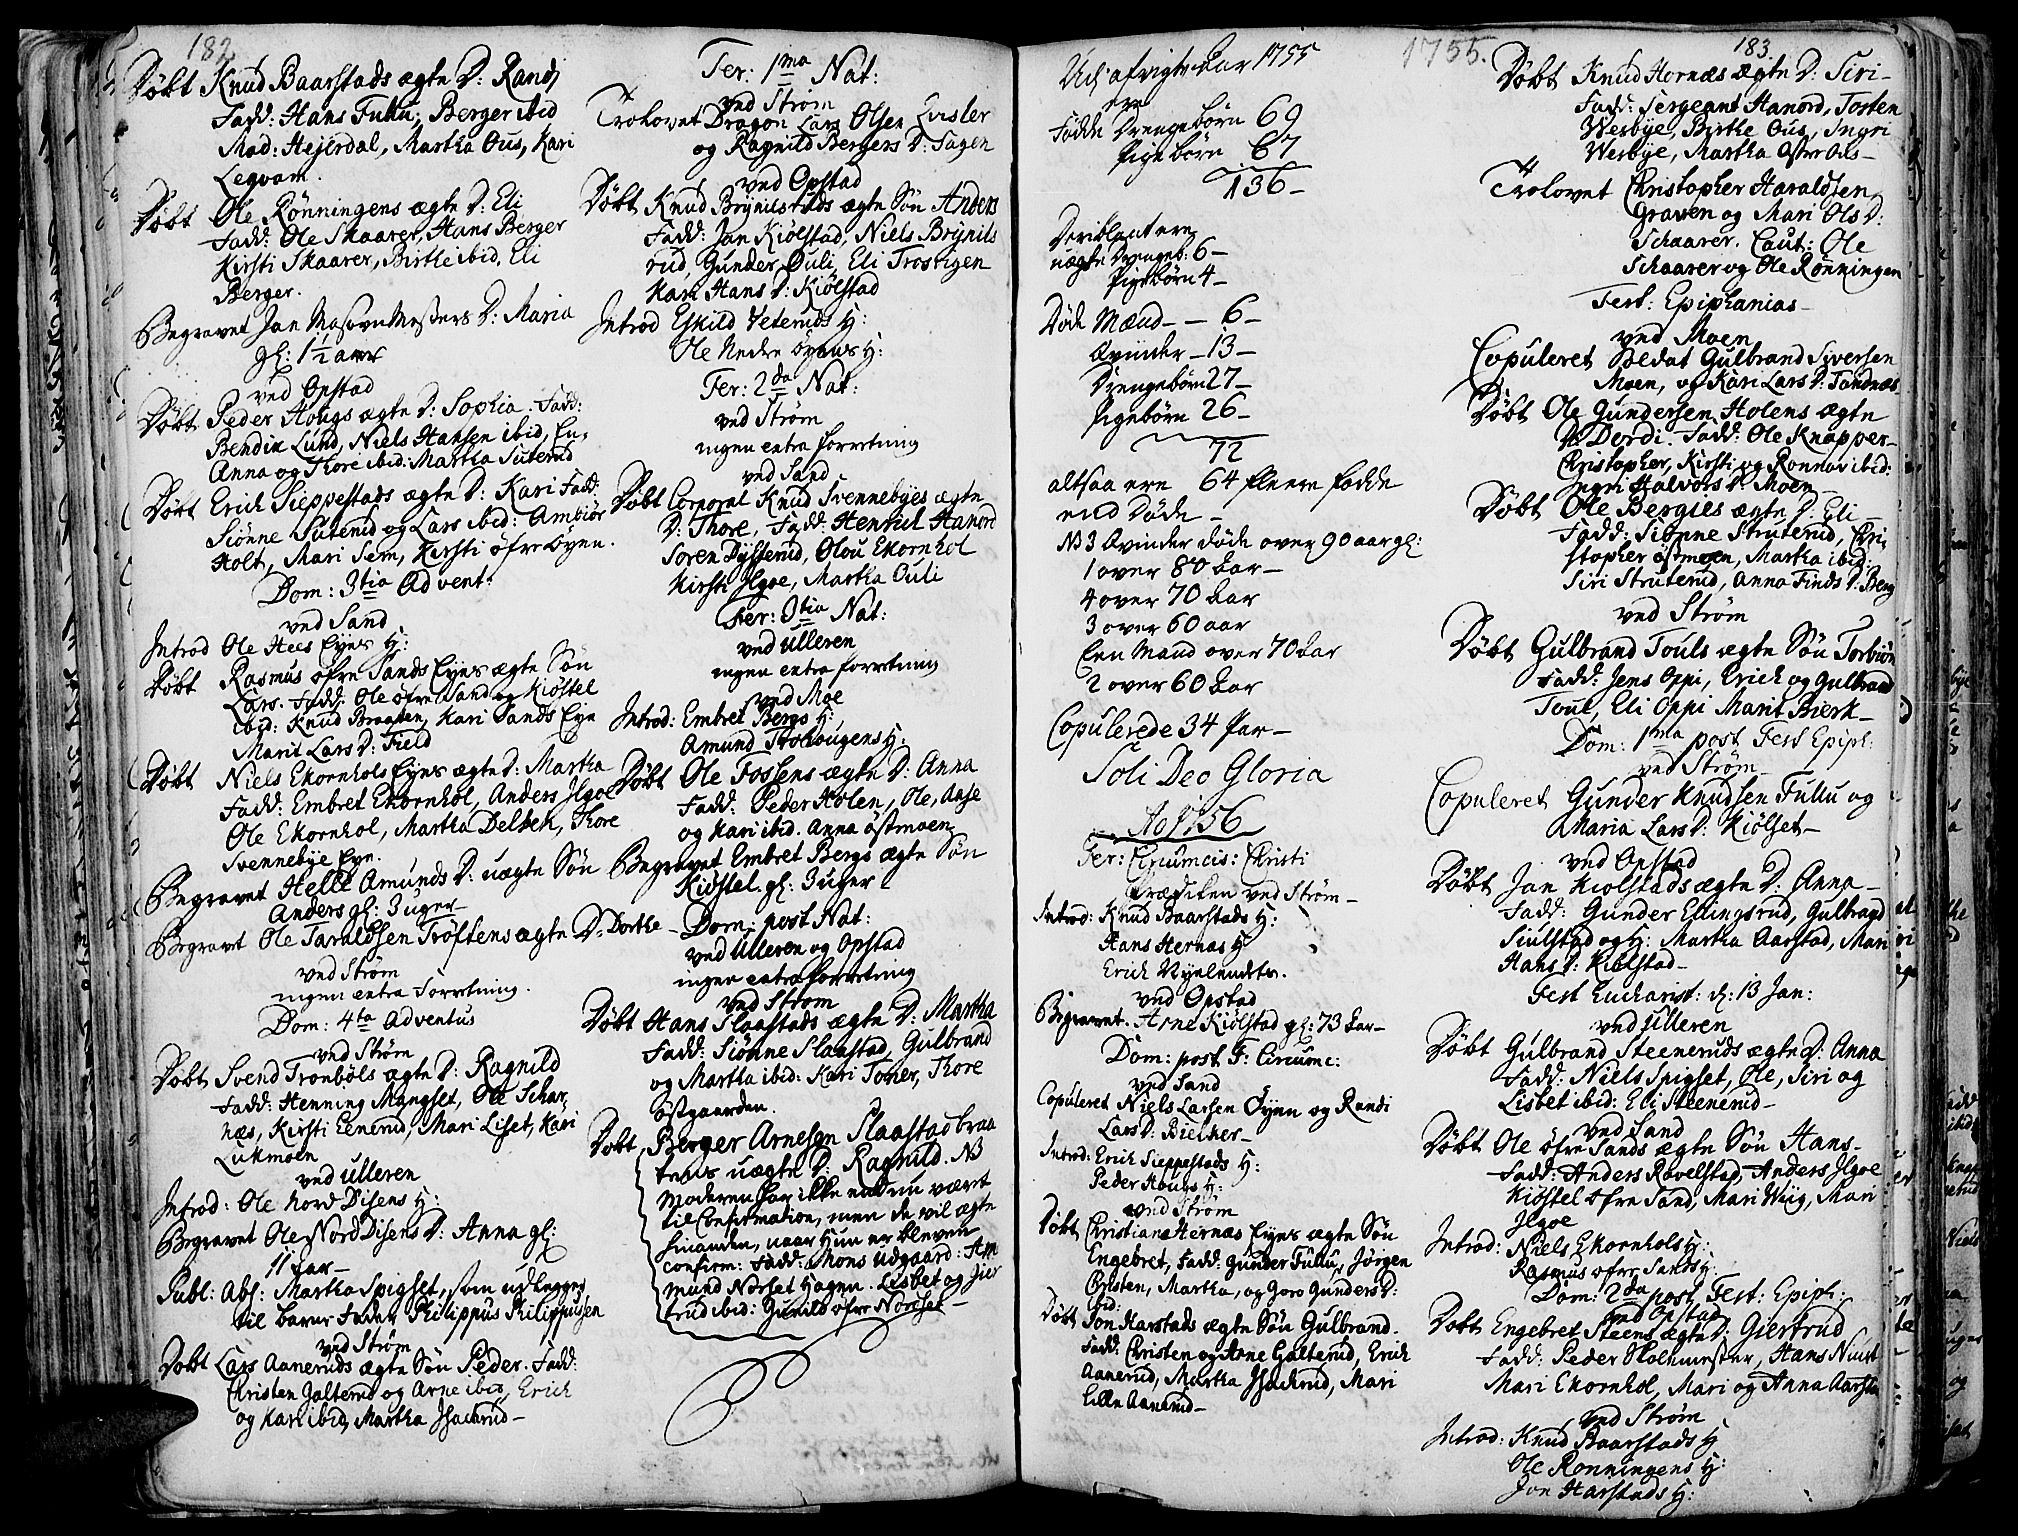 182
Døbt Knud Baarstads ægte D: Randi
Fadd: Hans Fulu, Berger ibid
Mad: Hejerdal, Martha Ous, Kari
Legvam.
Døbt Ole Rønningens ægte D: Eli
Fadd: Ole Skaarer, Hans Berger
Kirsti Skaarer, Birthe ibid, Eli
Berger.
Begravet Jan Masovnmesters D: Maria
gl: 1½ aar
ved Opstad
Døbt Peder Hougs ægte D: Sophia. Fadd:
Bendix Lund, Niels Hansen ibid,
Anna og Thore ibid: Martha Suterud
Døbt Erich Sieppestads ægte D: Kari Fadd:
Siønne Suterud og Lars ibid: Ambiør
Holt, Mari Sem, Kirsti øfre Øyen.
Dom: 3tia Advent:
ved Sand
Introd Ole Hees Eyes H:
Døbt Rasmus øfre Sands Eyes ægte Søn
Lars. Fadd: Ole øfre Sand og Kiøstel
ibid: Knud Braaten, Kari Sands Eye
Marit Lars D: Field
Døbt Niels Ekornhols Eyes ægte D: Martha
Fadd: Embret Ekornhol, Anders Jlgoe
Ole Ekornhol, Martha Delbek, Thore
Svennebye Eye.
Begravet Helle Amunds D: uægte Søn
Anders gl: 3 uger
Begravet Ole Taraldsen Trøftens ægte D: Dorthe
ved Strøm
ingen extra Forretning.
Dom: 4ta Adventus
ved Strøm
Døbt Svend Tronbøls ægte D: Ragnild
Fadd: Henning Mangset, Ole Schar,
næs, Kirsti Eenerud, Mari Liset, Kari
Lukmoen
ved Ulleren
Introd: Ole Nord Disens H:
Begravet Ole Nord Disens D: Anna gl:
11 aar
Publ: Abs: Martha Spigset, som udlegger
til barne Fader Philippus Philippusen
ved Strøm
Døbt Lars Aaneruds ægte Søn Peder. Fadd:
Christen Galterud og Arne ibid, Erich
og Kari ibid, Martha Jsachrud
Fer: 1ma Nat:
ved Strøm
Trolovet Dragon Lars Olsen Qvisler
og Ragnild Bergers D: Fagen
ved Opstad
Døbt Knud Brynilstuds ægte Søn Anders
Fadd: Jan Kiølstad, Niels Brynils
rud, Gunder Ouli, Eli Trostigen
Kari Hans D: Kiølstad
Introd Eskild Veteruds H:
Ole Nedre Øyens H:
Fer: 2da Nat:
ved Strøm
ingen extra forretning
ved Sand
Døbt Corporal Knud Svennebyes ægte
D: Thore, Fadd: Henrich Hanord
Soren Dysterud, Olou Ekornhol
Kirsti Jlgoe, Martha Ouli
Fer: 3tia Nat:
ved Ulleren
ingen extra forretning
ved Moe
Introd: Embret Bergs H:
Amund Trolhougens H:
Døbt Ole Fossens ægte D: Anna
Fadd: Peder Holen, Ole, Aase
og Kari ibid. Anna østmoen
Begravet Embret Bergs ægte Søn
Kiøstel. gl: 3 uger
Dom: post Nat:
ved Ulleren og Opstad
ingen extra forretning
ved Strøm
Døbt Hans Slaastads ægte D: Martha
Fadd: Siønne Slaastad, Gulbrand
og Martha ibid: Kari Tomer, Thore
østgaarden.
Døbt Berger Arnesen Slaastadbraa
tens uægte D: Ragnild. NB
Moderen har ikke endnu været
til Confirmation, men de vil ægte
hinanden, naar hun er bleven
confirm: Fadd: Mons Udgaard: Am
mund Norset Hagen. Lisbet og Jier
trud ibid: Gunild øfre Norset
1755.
Udi afvigte Aar 1755
ere
Fødde Drengebørn 69
Pigebørn 67
136
Deriblant ere
uægte Drengeb: 6
Pigebørn 4
Døde Mænd 6
Qvinder 13
Drengebørn 27
Pigebørn 26
72
altsaa ere 64 fleere fødde
end Døde
NB 3 Qvinder døde over 90 aar gl:
1 over 80 Aar
4 over 70 Aar
3 over 60 aar
Een Mand over 70 Aar
2 over 60 Aar
Copulerede 34 Par
Soli Deo Gloria
Ao 1756
Fer: Circumcis: Christi
Prædiken ved Strøm
Introd: Knud Baarstads H:
Hans Hernæs H
Erich Nyelendets.
ved Opstad
Begravet. Arne Kiølstad gl: 73 Aar
Dom: post F: Circumc:
ved Sand
Copuleret Niels Larsen Øyen og Randi
Lars D: Biecher
Introd: Erich Sieppestads H:
Peder Hougs H:
ved Strøm
Døbt Christian Hernæs Eyes ægte Søn
Engebret, Fadd: Gunder Fullu, Jørgen
Christen, Martha, og Goro Gunders D:
ibid:
Døbt Jon Harstads ægte Søn Gulbrand.
Fadd: Christen og Arne Galterud, Erich
Aanerud, Martha Jsachrud, Mari
Lille Aanerud
183.
Døbt Knud Hornæs ægte D: Siri
Fadd: Sergeant Hanord, Tosten
Wesbye, Birthe Ous, Ingri
Wesbye, Martha Oster Ous
Trolovet Christopher Haraldsen
Graven og Mari Ols D:
Schaarer. Caut: Ole
Schaarer og Ole Rønningen
Fest: Epiphanias
ved Moen
Copuleret Soldat Gulbrand Siversen
Moen, og Kari Lars D: Tandnæs
Døbt Ole Gundersen Holens ægte
D: Dordi. Fadd: Ole Knapper
Christopher, Kirsti og Ronnov ibid:
Ingri Halvors D: Moen
Døbt Ole Bergies ægte D: Eli
Fadd: Siønne Struterud, Chri
stopher østmoen, Martha ibid:
Siri Struterud, Anna Finds D: Berg
ved Strøm
Døbt Gulbrand Touls ægte Søn Torbiøn
Fadd: Jens Oppi, Erich og Gulbrand
Toul, Eli Oppi Marit Bierk
Dom: 1ma post Fest Epiph:
ved Strøm
Copuleret Gunder Knudsen Fullu og
Maria Lars D: Kiølset
ved Opstad
Døbt Jan Kiolstads ægte D: Anna
Fadd: Gunder Ellingsrud, Gulbrand
Siulstad og H: Martha Aarstad, Mari
Hans D: Kiølstad
Fest Eucharist: d: 13 Jan:
ved Ulleren
Døbt Gulbrand Steeneruds ægte D: Anna
Fadd: Niels Spigset, Ole, Siri og
Lisbet ibid: Eli Steenerud
ved Sand
Døbt Ole øfre Sands ægte Søn Hans
Fadd: Anders Ravelstad, Anders Jlgoe
Kiøstel øfre Sand, Mari Wiig, Mari
Jlgoe
Introd: Niels Ekornhols H:
Rasmus øfre Sands H:
Dom: 2da post Fest: Epiph:
ved Opstad
Døbt Engebret Steens ægte D: Giertrud
Fadd: Peder Skolemester, Hans Nust
Mari Ekornhol, Mari og Anna Aarsta
ved Strøm
Introd: Knud Baarstads H
Ole Ronningens H:
Jon Harstads H: